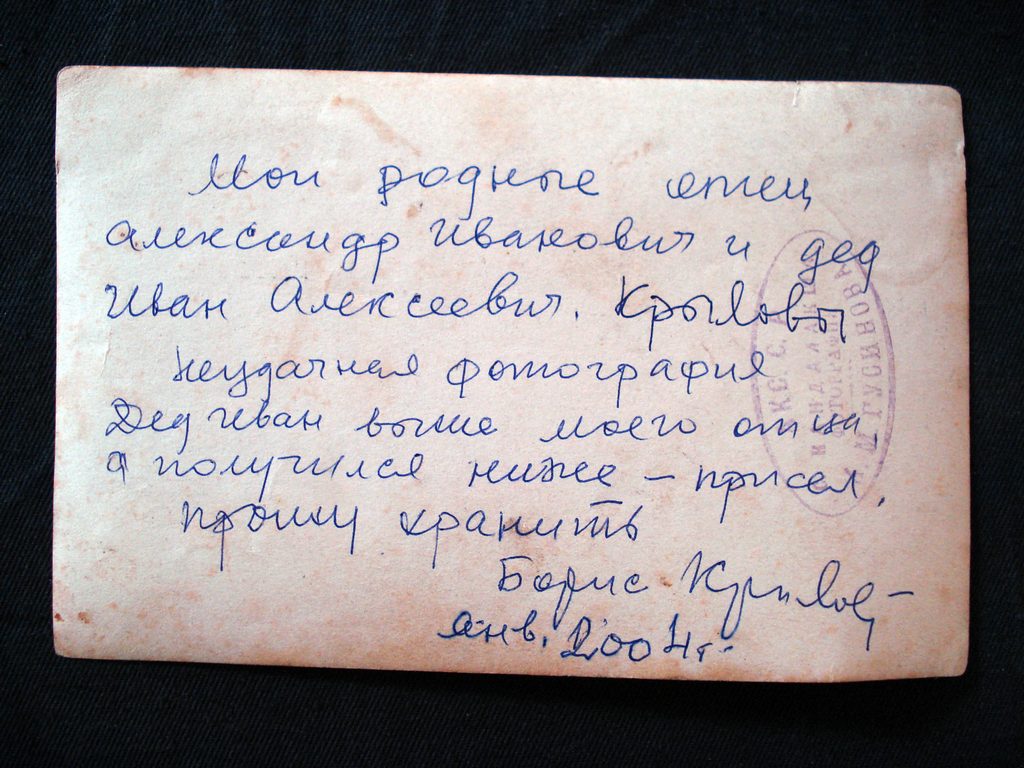 Мои родные отец
Александр Иванович и дед
Иван Алексеевич. Крыловы
Неудачная фотография
Дед Иван выше моего отца,
а получился ниже – присел.
прошу хранить
Борис Крылов
янв. 2004 г.